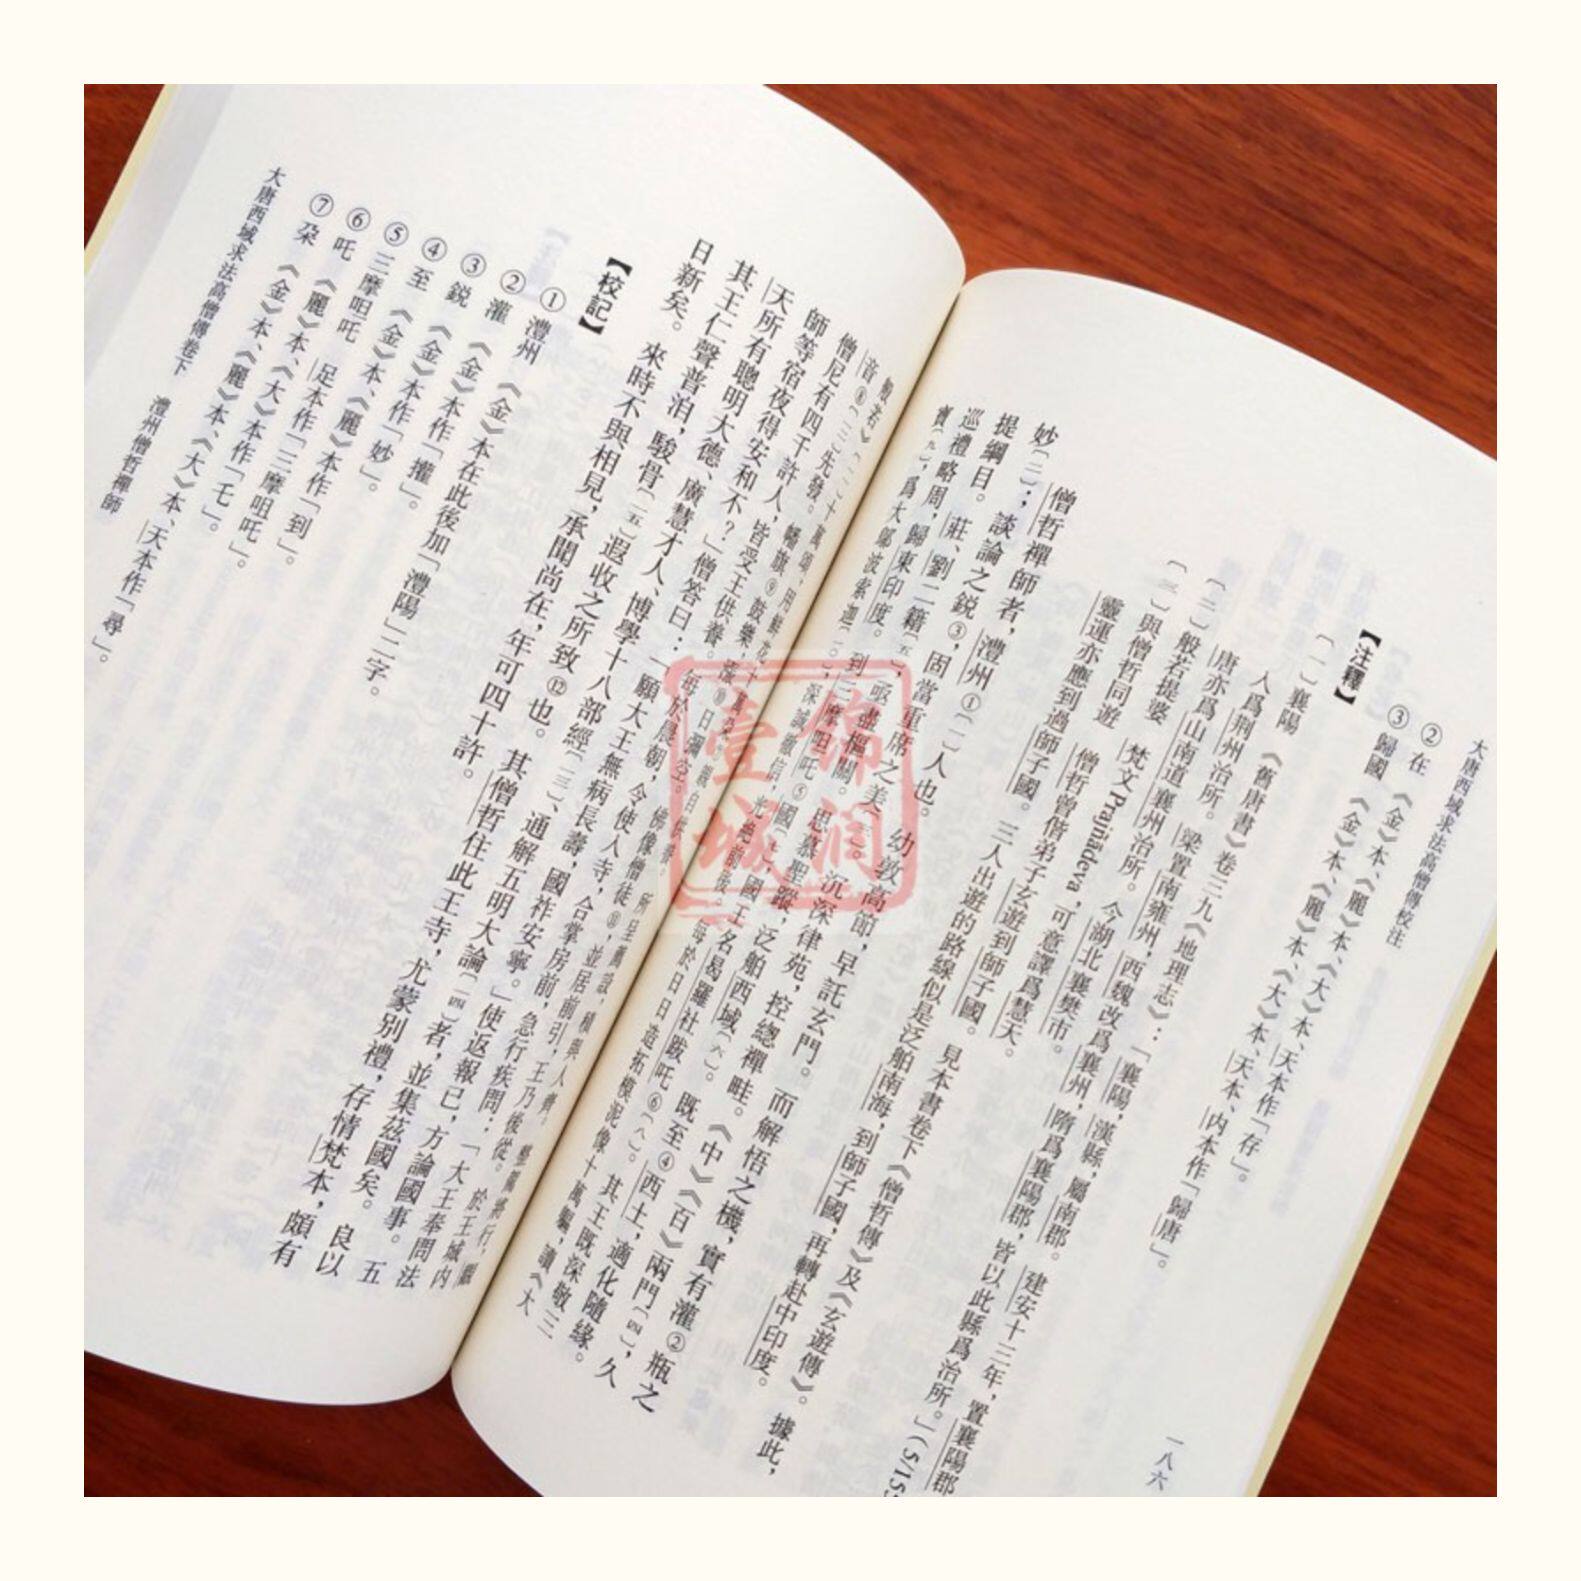 大唐西域求法高僧傳校注
一八六
②在　《金》本、《麗》本、《大》本、天本作「存」。
③歸國　《金》本、《麗》本、《大》本、天本、内本作「歸唐」。
【注釋】
〔一〕襄陽　《舊唐書》卷三九《地理志》：「襄陽，漢縣，屬南郡。建安十三年，置襄陽郡
人爲荆州治所。梁置南雍州，西魏改爲襄州，隋爲襄陽郡，皆以此縣爲治所。」（5/155
唐亦爲山南道襄州治所。今湖北襄樊市。
〔二〕般若提婆　梵文Prajñādeva，可意譯爲慧天。
〔三〕與僧哲同遊　僧哲曾偕弟子玄遊到師子國。三人出遊的路線似是泛舶南海，到師子國，再轉赴中印度。
靈運亦應到過師子國。見本書卷下《僧哲傳》及《玄遊傳》。據此，
僧哲禪師者，澧州①〔一〕人也。幼敦高節，早託玄門。而解悟之機，實有灌②瓶之
妙〔二〕；談論之鋭③，固當重席之美〔三〕。沉深律苑，控總禪畦。《中》《百》兩門〔四〕，久
提綱目。莊、劉二籍〔五〕，亟盡樞關。思慕聖蹤，泛舶西域〔六〕。既至④西土，適化隨緣。
巡禮略周，歸東印度。到三摩呾吒⑤國〔七〕，國王名曷羅社跋吒⑥〔八〕。其王既深敬三
寶〔九〕，爲大鄔波索迦〔一〇〕，深誠徹信，光絶前後。每於日日造拓模泥像十萬軀，讀《大
般若》〔一二〕十萬頌，用鮮花十萬
音⑧〔一三〕先發。幡旗⑨鼓樂，漲⑩日彌空。佛像僧徒⑪，並居前引，王乃後從。於王城内
僧尼有四千許人，皆受王供養。每於晨朝，令使入寺，合掌房前，急行疾問：「大王奉問法
師等宿夜得安和不？」僧答曰：「願大王無病長壽，國祚安寧。」使返報已，方論國事。五
天所有聰明大德、廣慧才人、博學十八部經〔一三〕、通解五明大論〔一四〕者，並集茲國矣。良以
其王仁聲普洎，駿骨〔一五〕遐收之所致⑫也。其僧哲住此王寺，尤蒙別禮，存情梵本，頗有
日新矣。來時不與相見，承聞尚在，年可四十許。
【校記】
①澧州　《金》本在此後加「澧陽」二字。
②灌　《金》本作「㩲」。
③鋭　《金》本作「妙」。
④至　《金》本、《麗》本作「到」。
⑤三摩呾吒　足本作「三摩呾吒」。
⑥吒　《麗》本、《大》本作「乇」。
⑦朶　《金》本、《麗》本、《大》本、天本作「尋」。
大唐西域求法高僧傳卷下　澧州僧哲禪師